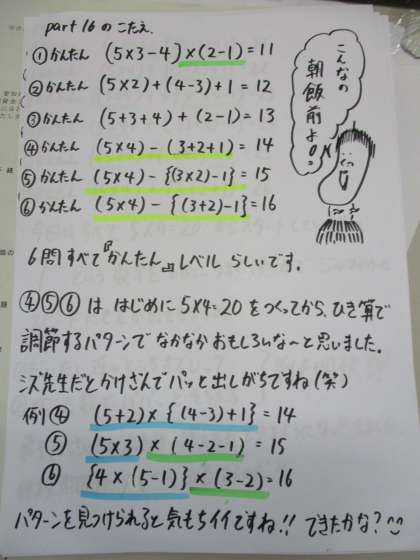 part 16 のこたえ.
① かんたん (5×3-4)×(2-1)=11
② かんたん (5×2)+(4-3)+1=12
③ かんたん (5+3+4)+(2-1)=13
④ かんたん (5×4)-(3+2+1)=14
⑤ かんたん (5×4)-{(3×2)-1}=15
⑥ かんたん (5×4)-{(3+2)-1}=16
こんなの
朝飯前よ♪。
6問すべて『かんたん』レベルらしいです.
④⑤⑥は はじめに 5×4=20 をつくってから、ひき算で
調節するパターンでなかなかおもしろいな〜と思いました.
シズ先生だとかけざんでパッと出しがちですね(笑)
例④ (5+2)×{(4-3)+1}=14
⑤ (5×3)×(4-2-1)=15
⑥ {4×(5-1)}×(3-2)=16
パターンを見つけられると気もちイイですね!! できたかな?